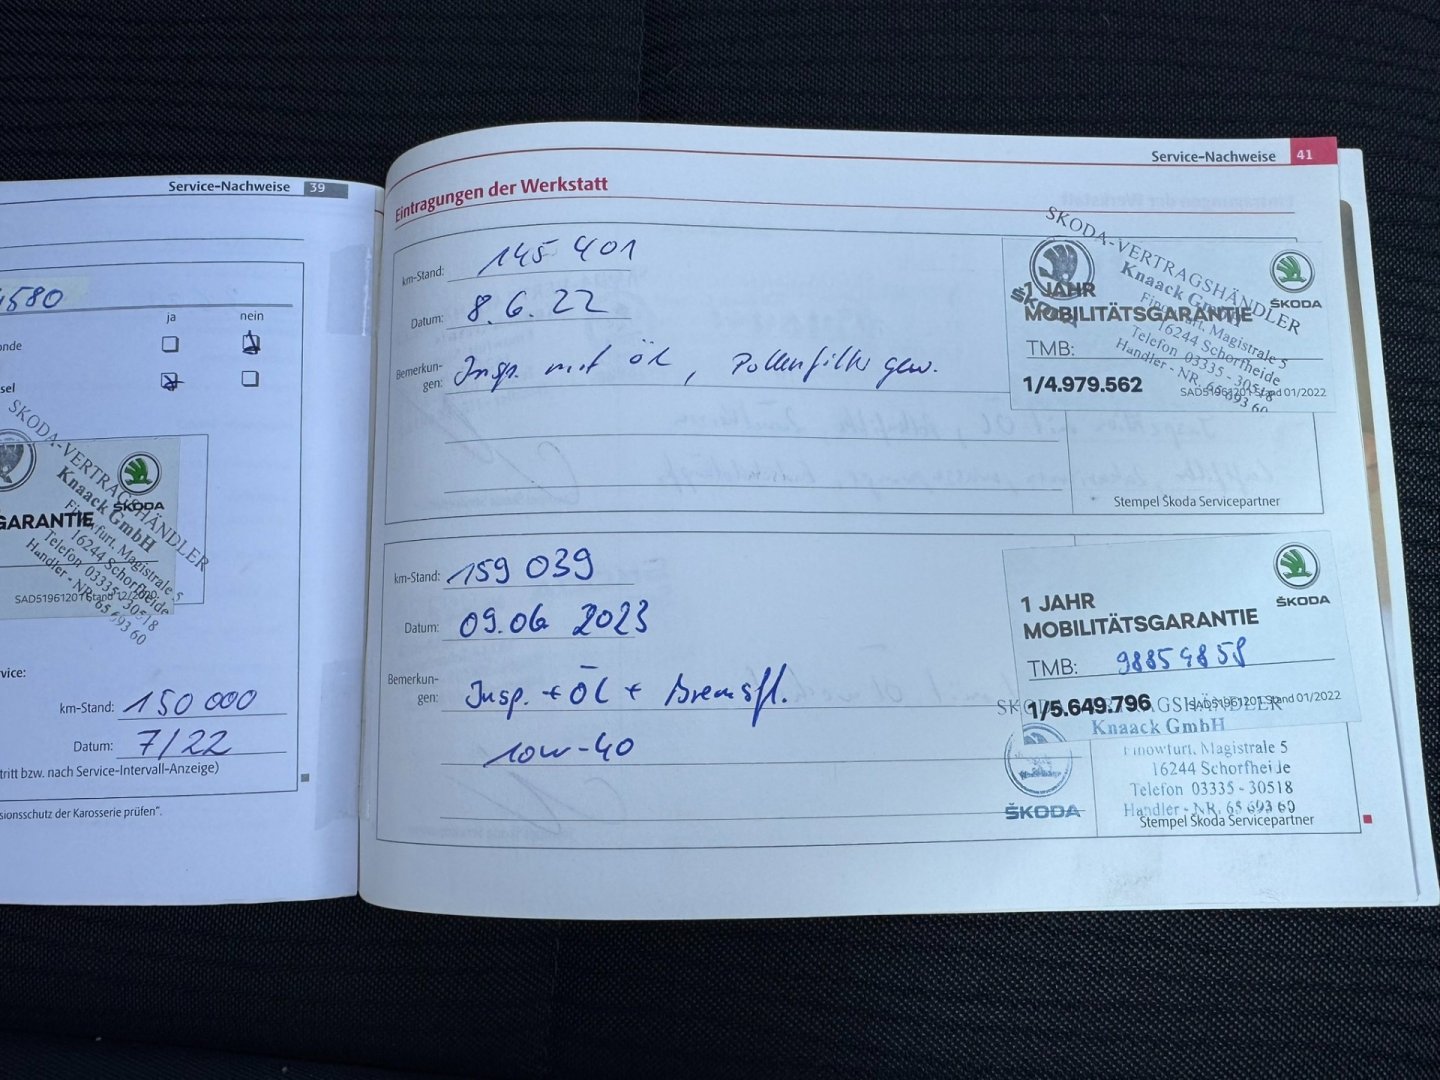 Service-Nachweise 39
4580
ja nein
onde
sel
SKODA-VERTRAGSHÄNDLER
Knaack GmbH
Finowfurt. Magistrale 5
16244 Schorfheide
Telefon 03335 - 30518
Händler - NR. 65 693 60
ŠKODA
GARANTIE
SAD5196120
vice:
km-Stand: 150 000
Datum: 7/22
tritt bzw. nach Service-Intervall-Anzeige)
sionsschutz der Karosserie prüfen".
Service-Nachweise 41
Eintragungen der Werkstatt
km-Stand: 145 401
Datum: 8.6.22
Bemerkun-
gen: Insp. mit Öl, Pollenfilter gew.
SKODA-VERTRAGSHÄNDLER
Knaack GmbH
Finowfurt. Magistrale 5
16244 Schorfheide
Telefon 03335 - 30518
Händler - NR. 65 693 60
ŠKODA
ŠKODA
1 JAHR
MOBILITÄTSGARANTIE
TMB:
1/4.979.562
SAD51961201 Stand 01/2022
Stempel Škoda Servicepartner
km-Stand: 159 039
Datum: 09.06 2023
Bemerkun-
gen: Insp. + ÖL + Bremsfl.
10W-40
ŠKODA
1 JAHR
MOBILITÄTSGARANTIE
TMB: 98854858
1/5.649.796
SAD51961201 Stand 01/2022
SKODA-VERTRAGSHÄNDLER
Knaack GmbH
Finowfurt. Magistrale 5
16244 Schorfheide
Telefon 03335 - 30518
Händler - NR. 65 693 60
ŠKODA
Stempel Škoda Servicepartner